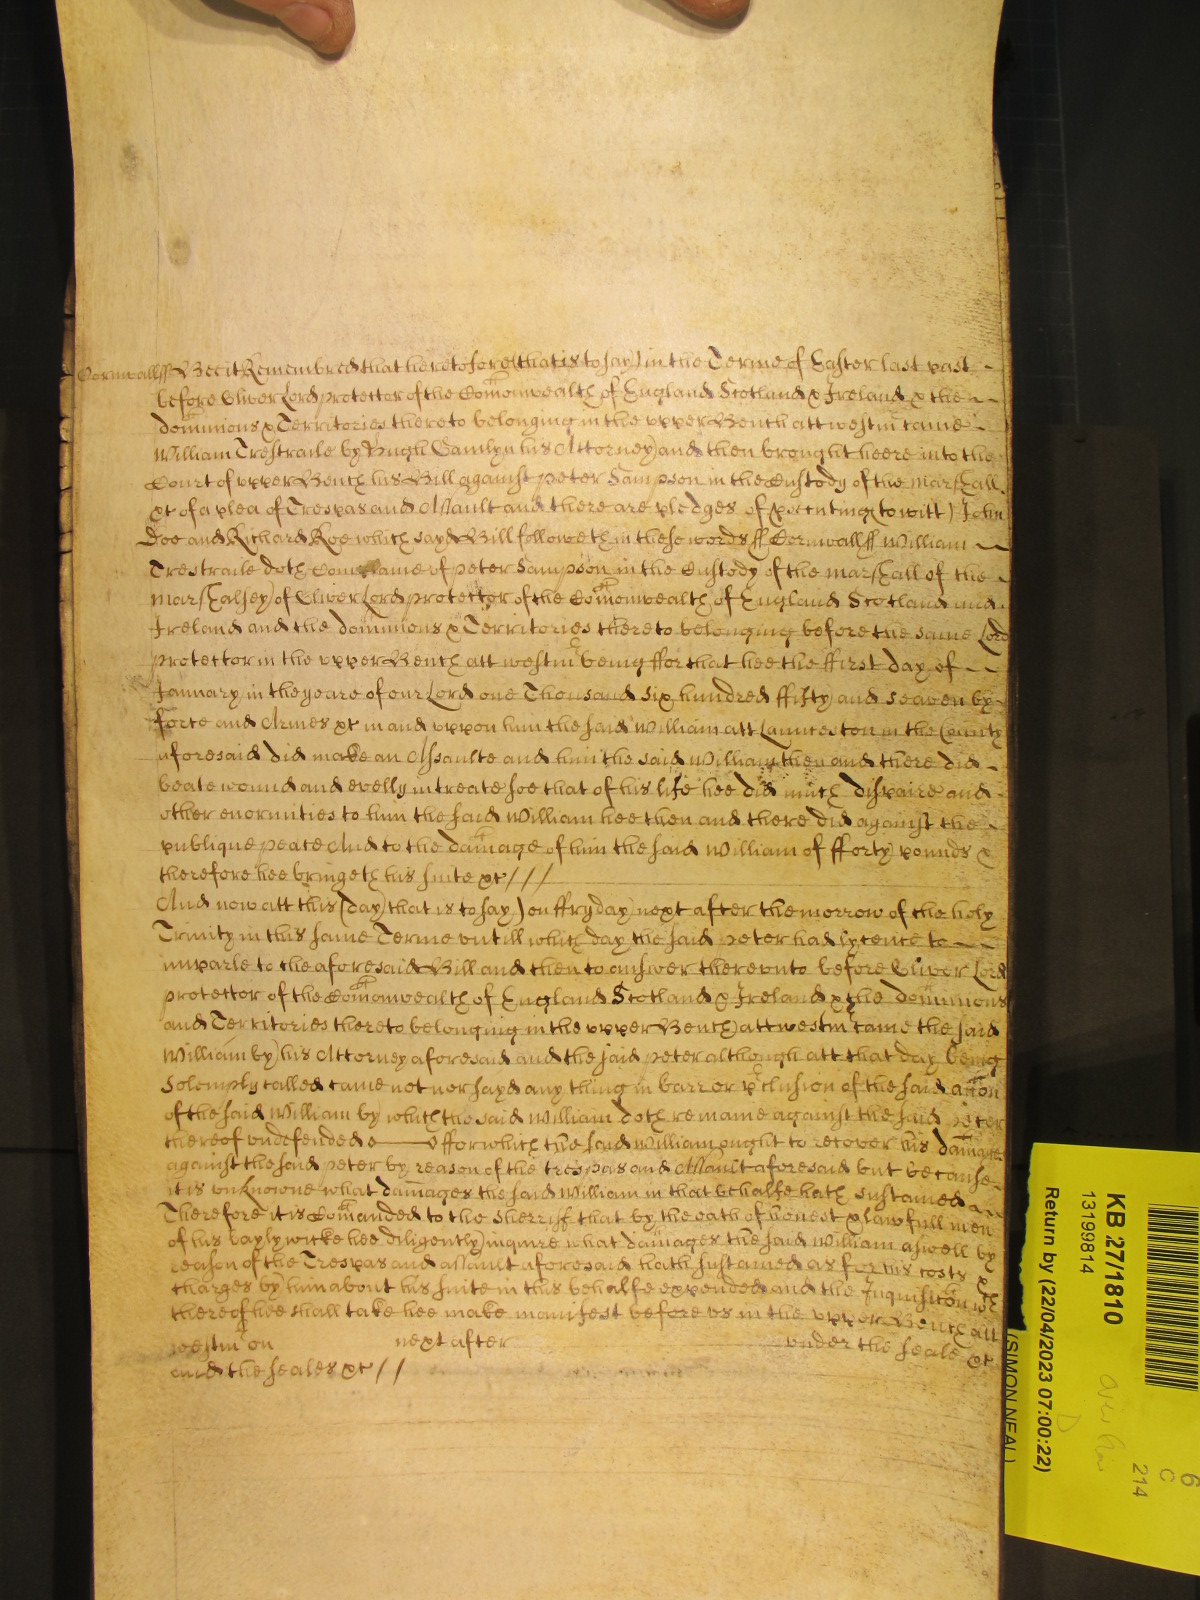 Cornwall ff Bee it Remembred that heretofore (that is to say) in the Terme of Easter last past
before Oliver Lord protector of the Comonwealth of England Scotland & Ireland & the
dominions & Territories thereto belonging in the upper Bench att westm came
William Trestraile by Hugh Camlyn his Attorney and then brought heere into the
Court of upper Bench his Bill against peter Sampson in the Custody of the marshall
&c of a plea of Trespas and Assault and there are pledges of p'centing (to witt) John
Doe and Richard Roe which sayd Bill followeth in these words ff Cornwall ff William
Trestraile doth Complaine of peter Sampson in the Custody of the marshall of the
marshalsey of Oliver Lord protector of the Comonwealth of England Scotland and
Ireland and the dominions & Territories thereto belonging before the same Lord
protector in the upper Bench att westm being ffor that hee the ffirst day of
January in the yeare of our Lord one Thousand six hundred ffifty and seaven by
force and Armes &c in and uppon him the said William att Launceston in the County
aforesaid did make an Assaulte and him the said William then and there did
beate wound and evelly intreate soe that of his life hee did much dispaire and
other enormities to him the said William hee then and there did against the
publique peace And to the damage of him the said William of fforty pounds &
therefore hee bringeth his suite &c ///
And now att this (day) that is to say) on ffryday next after the morrow of the holy
Trinity in this same Terme untill which day the said peter had lycence to
imparle to the aforesaid Bill and then to answer thereunto before Oliver Lord
protector of the Comonwealth of England Scotland & Ireland & the dominions
and Territories thereto belonging in the upper Bench att westm came the said
William by his Attorney aforesaid and the said peter although att that day being
Solemply called came not nor sayd any thing in barr or p'clusion of the said accon
of the said William by which the said William doth remaine against the said peter
thereof undefended ffor which the said William ought to recover his damages
against the said peter by reason of the trespas and Assault aforesaid but because
it is unknowne what damages the said William in that behalfe hath sustained
Therefore it is Comanded to the Sherriff that by the oath of honest & lawfull men
of his baylywicke hee diligently inquire what damages the said William aswell by
reason of the Trespas and assault aforesaid hath sustained as for his costs &
charges by him about his suite in this behalfe expended and the Inquisicon wch
thereof hee shall take hee make manifest before us in the upper Bench att
westm on next after under the seale &c
and the seales &c //
KB 27/1810
13199814
Return by (22/04/2023 07:00:22)
(SIMON NEAL)
6
C
214
D